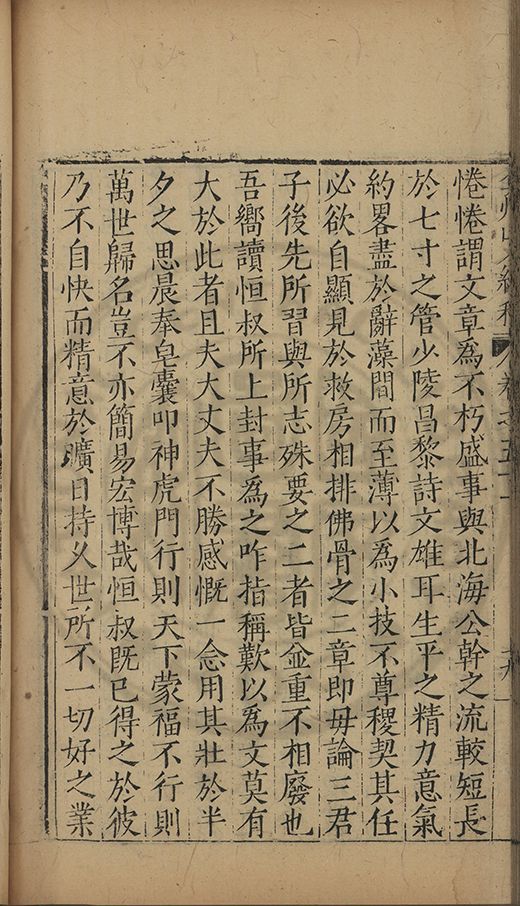 惓惓謂文章為不朽盛事與北海公幹之流較短長
於七寸之管少陵昌黎詩文雄耳生平之精力意氣
約畧盡於辭藻間而至薄以為小技不尊稷契其任
必欲自顯見於救房相排佛骨之二章即毋論三君
子後先所習與所志殊要之二者皆並重不相廢也
吾嚮讀恒叔所上封事為之咋指稱歎以為文莫有
大於此者且夫大丈夫不勝感慨一念用其壯於半
夕之思晨奉皁囊叩神虎門行則天下蒙福不行則
萬世歸名豈不亦簡易宏博哉恒叔既已得之於彼
乃不自快而精意於曠日持久世所不一切好之業